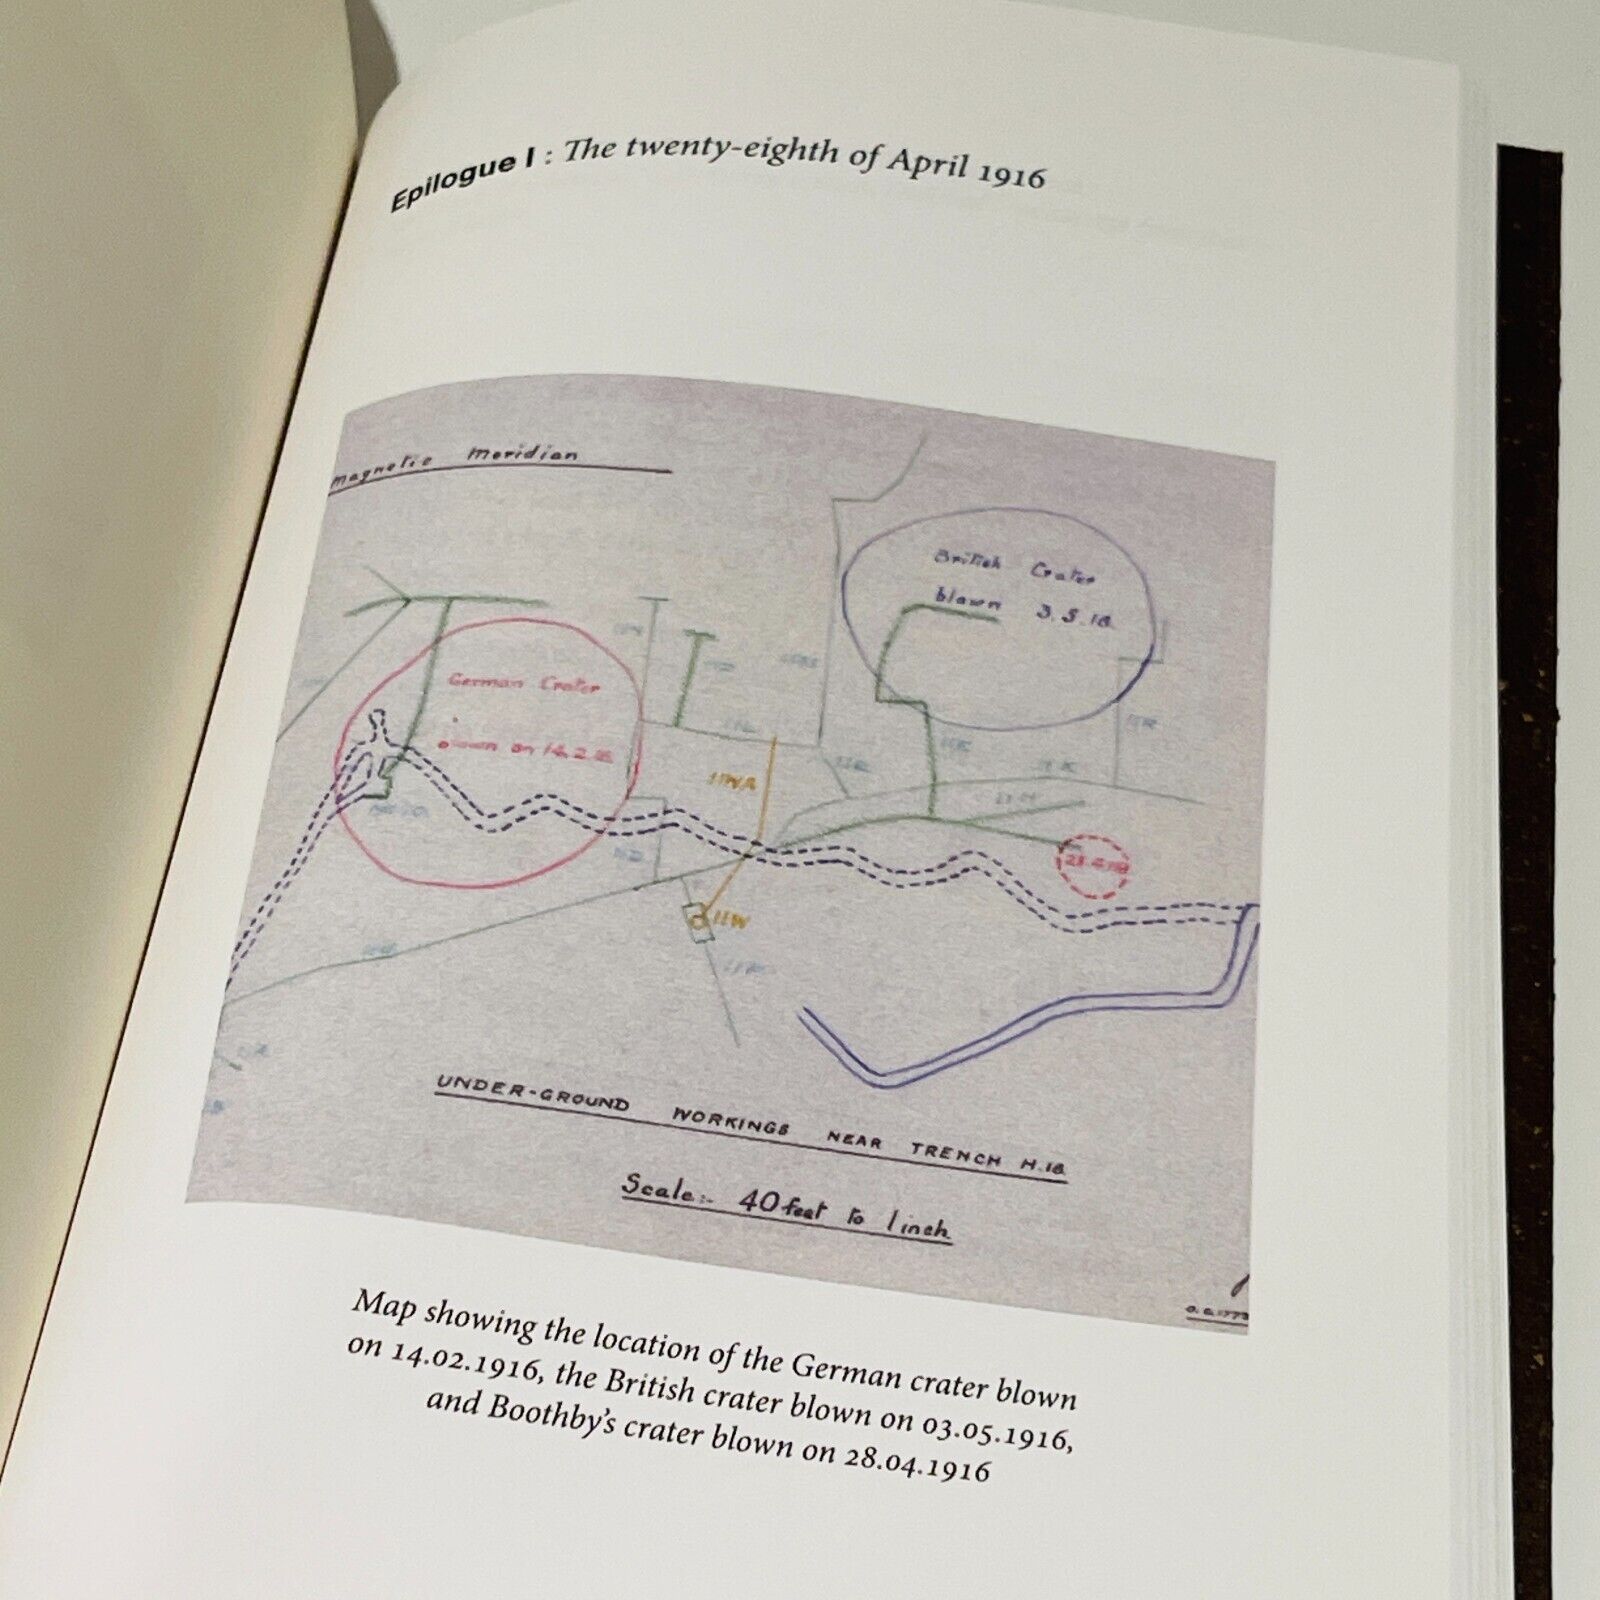 Epilogue I : The twenty-eighth of April 1916
Magnetic Meridian
British Crater
blown 3.5.16.
German Crater
blown on 14.2.16
11WA
11W
UNDER-GROUND WORKINGS NEAR TRENCH H.16
Scale:- 40 feet to 1 inch
Map showing the location of the German crater blown
on 14.02.1916, the British crater blown on 03.05.1916,
and Boothby's crater blown on 28.04.1916